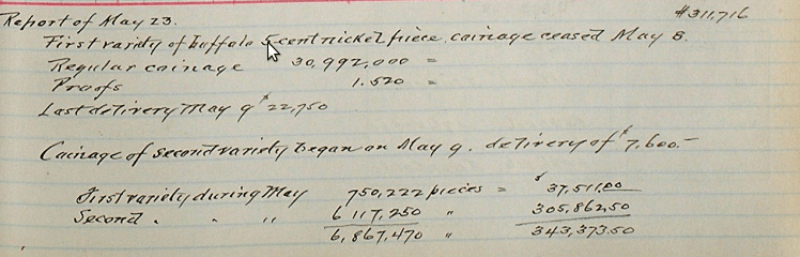 Report of May 23.
#311,716
First variety of buffalo 5 cent nickel piece, coinage ceased May 8.
Regular coinage 30,992,000 =
Proofs 1.520 =
Last delivery May 9 $22,750
Coinage of second variety began on May 9. delivery of $7,600.—
First variety during May 750,222 pieces = $37,511.00
Second " " " 6 117,250 " 305,862.50
6,867,470 " 343,373.50